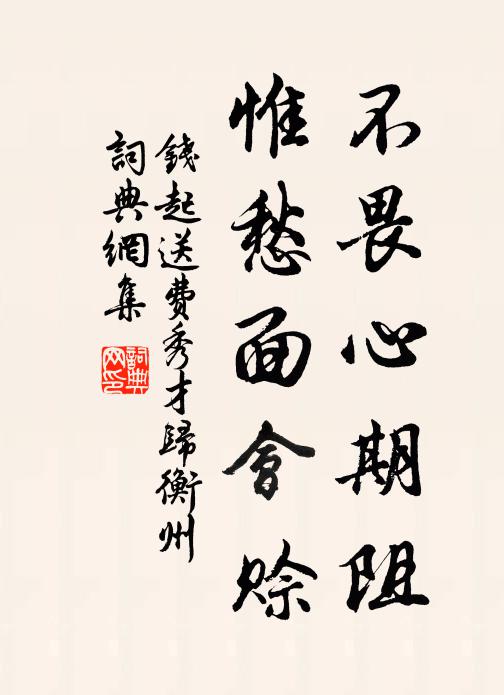 不畏心期阻
惟愁面會賒
錢起送费秀才歸衡州
詞典網集
詞典
网印